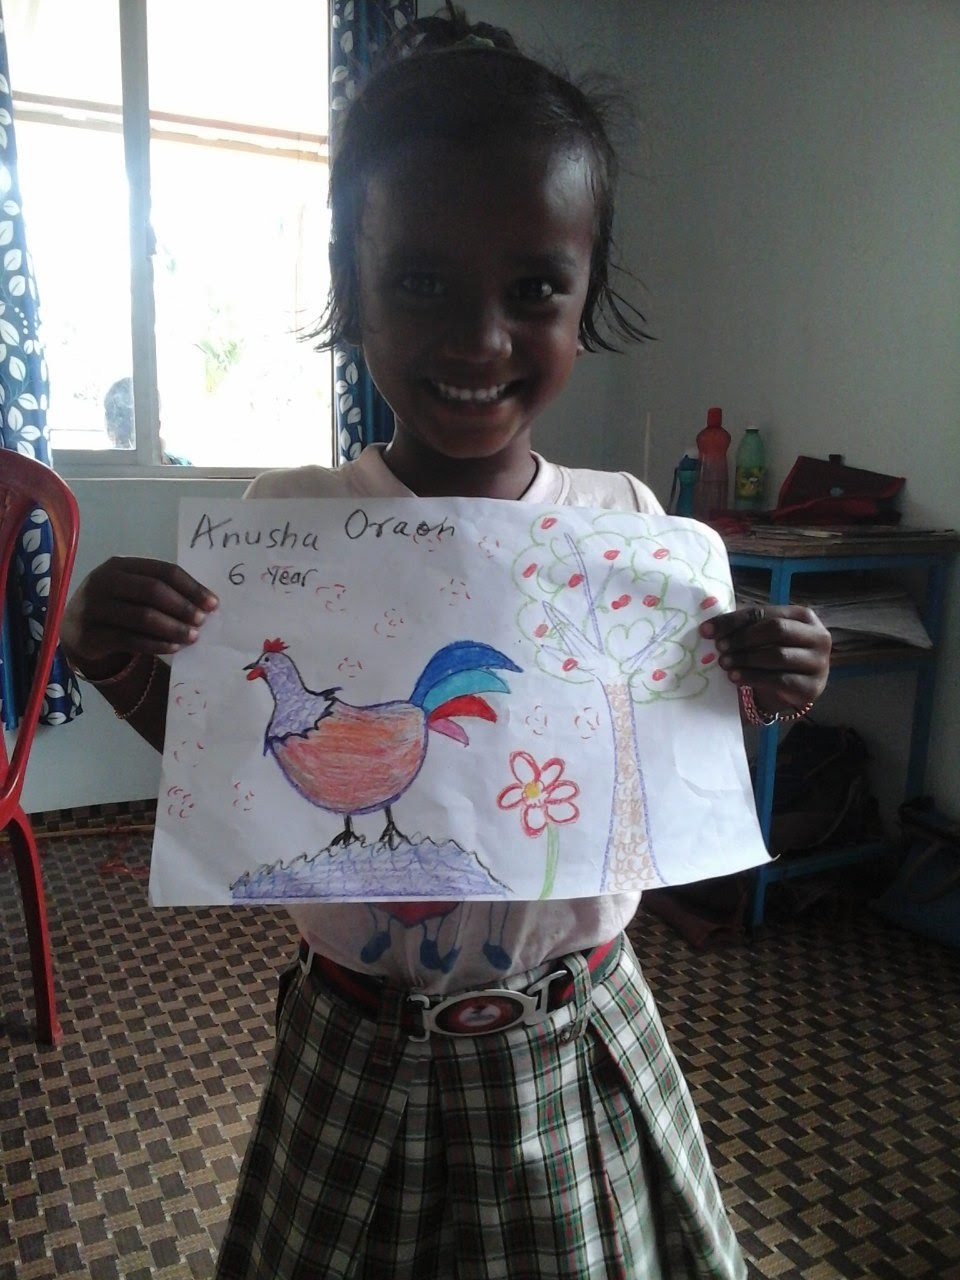 Anusha Oraon
6 Year